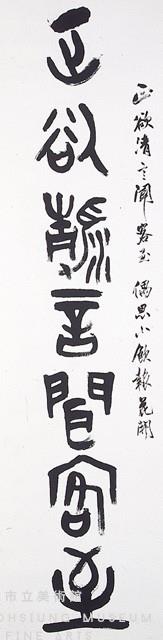 正欲清言聞客至 偶思小飲報花開
正欲清言聞客至
市立美術館
OHSIUNG MUSEUM
FINE ARTS